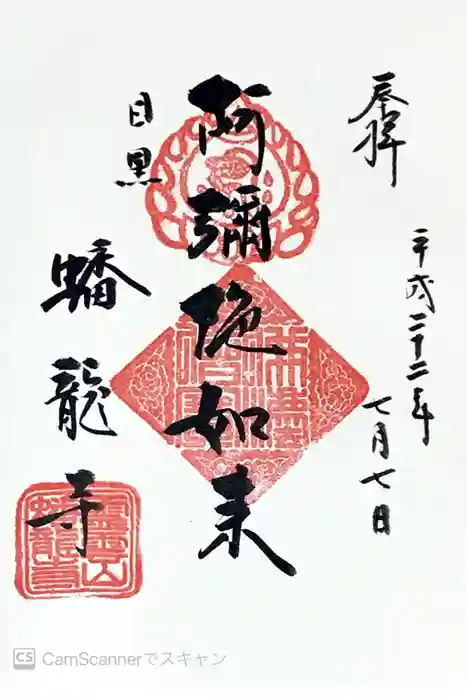 奉拝
平成二十二年
七月七日
阿彌陀如来
目黒
蟠龍寺
CS CamScannerでスキャン